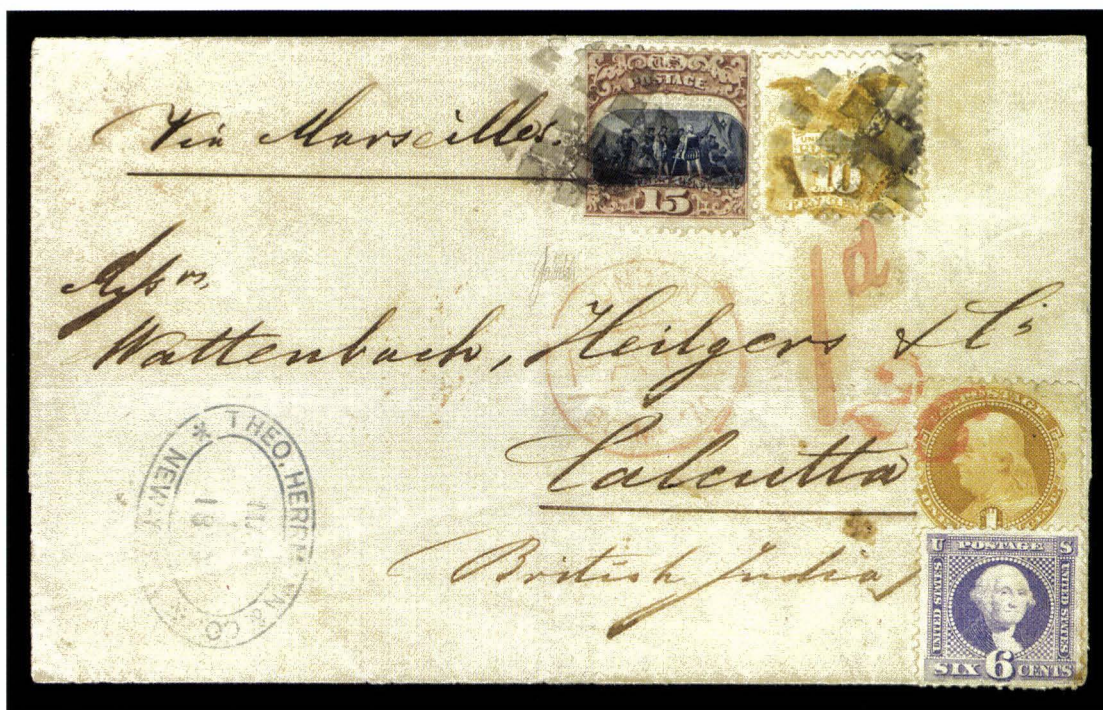 U.S.
POSTAGE
15
10
Via Marseilles.
Messrs.
Wattenbach, Heilgers & Co
Calcutta
British India
1d
THEO. HERRM N & CO.
* NEW-Y
18
U.S. POSTAGE
1
U POSTAGE S
UNITED STATES
UNITED STATES
SIX 6 CENTS